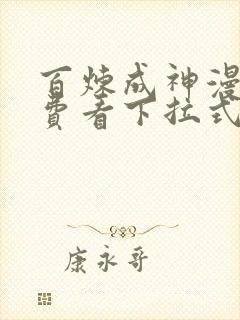 百炼成神漫
费看下拉式
康永哥